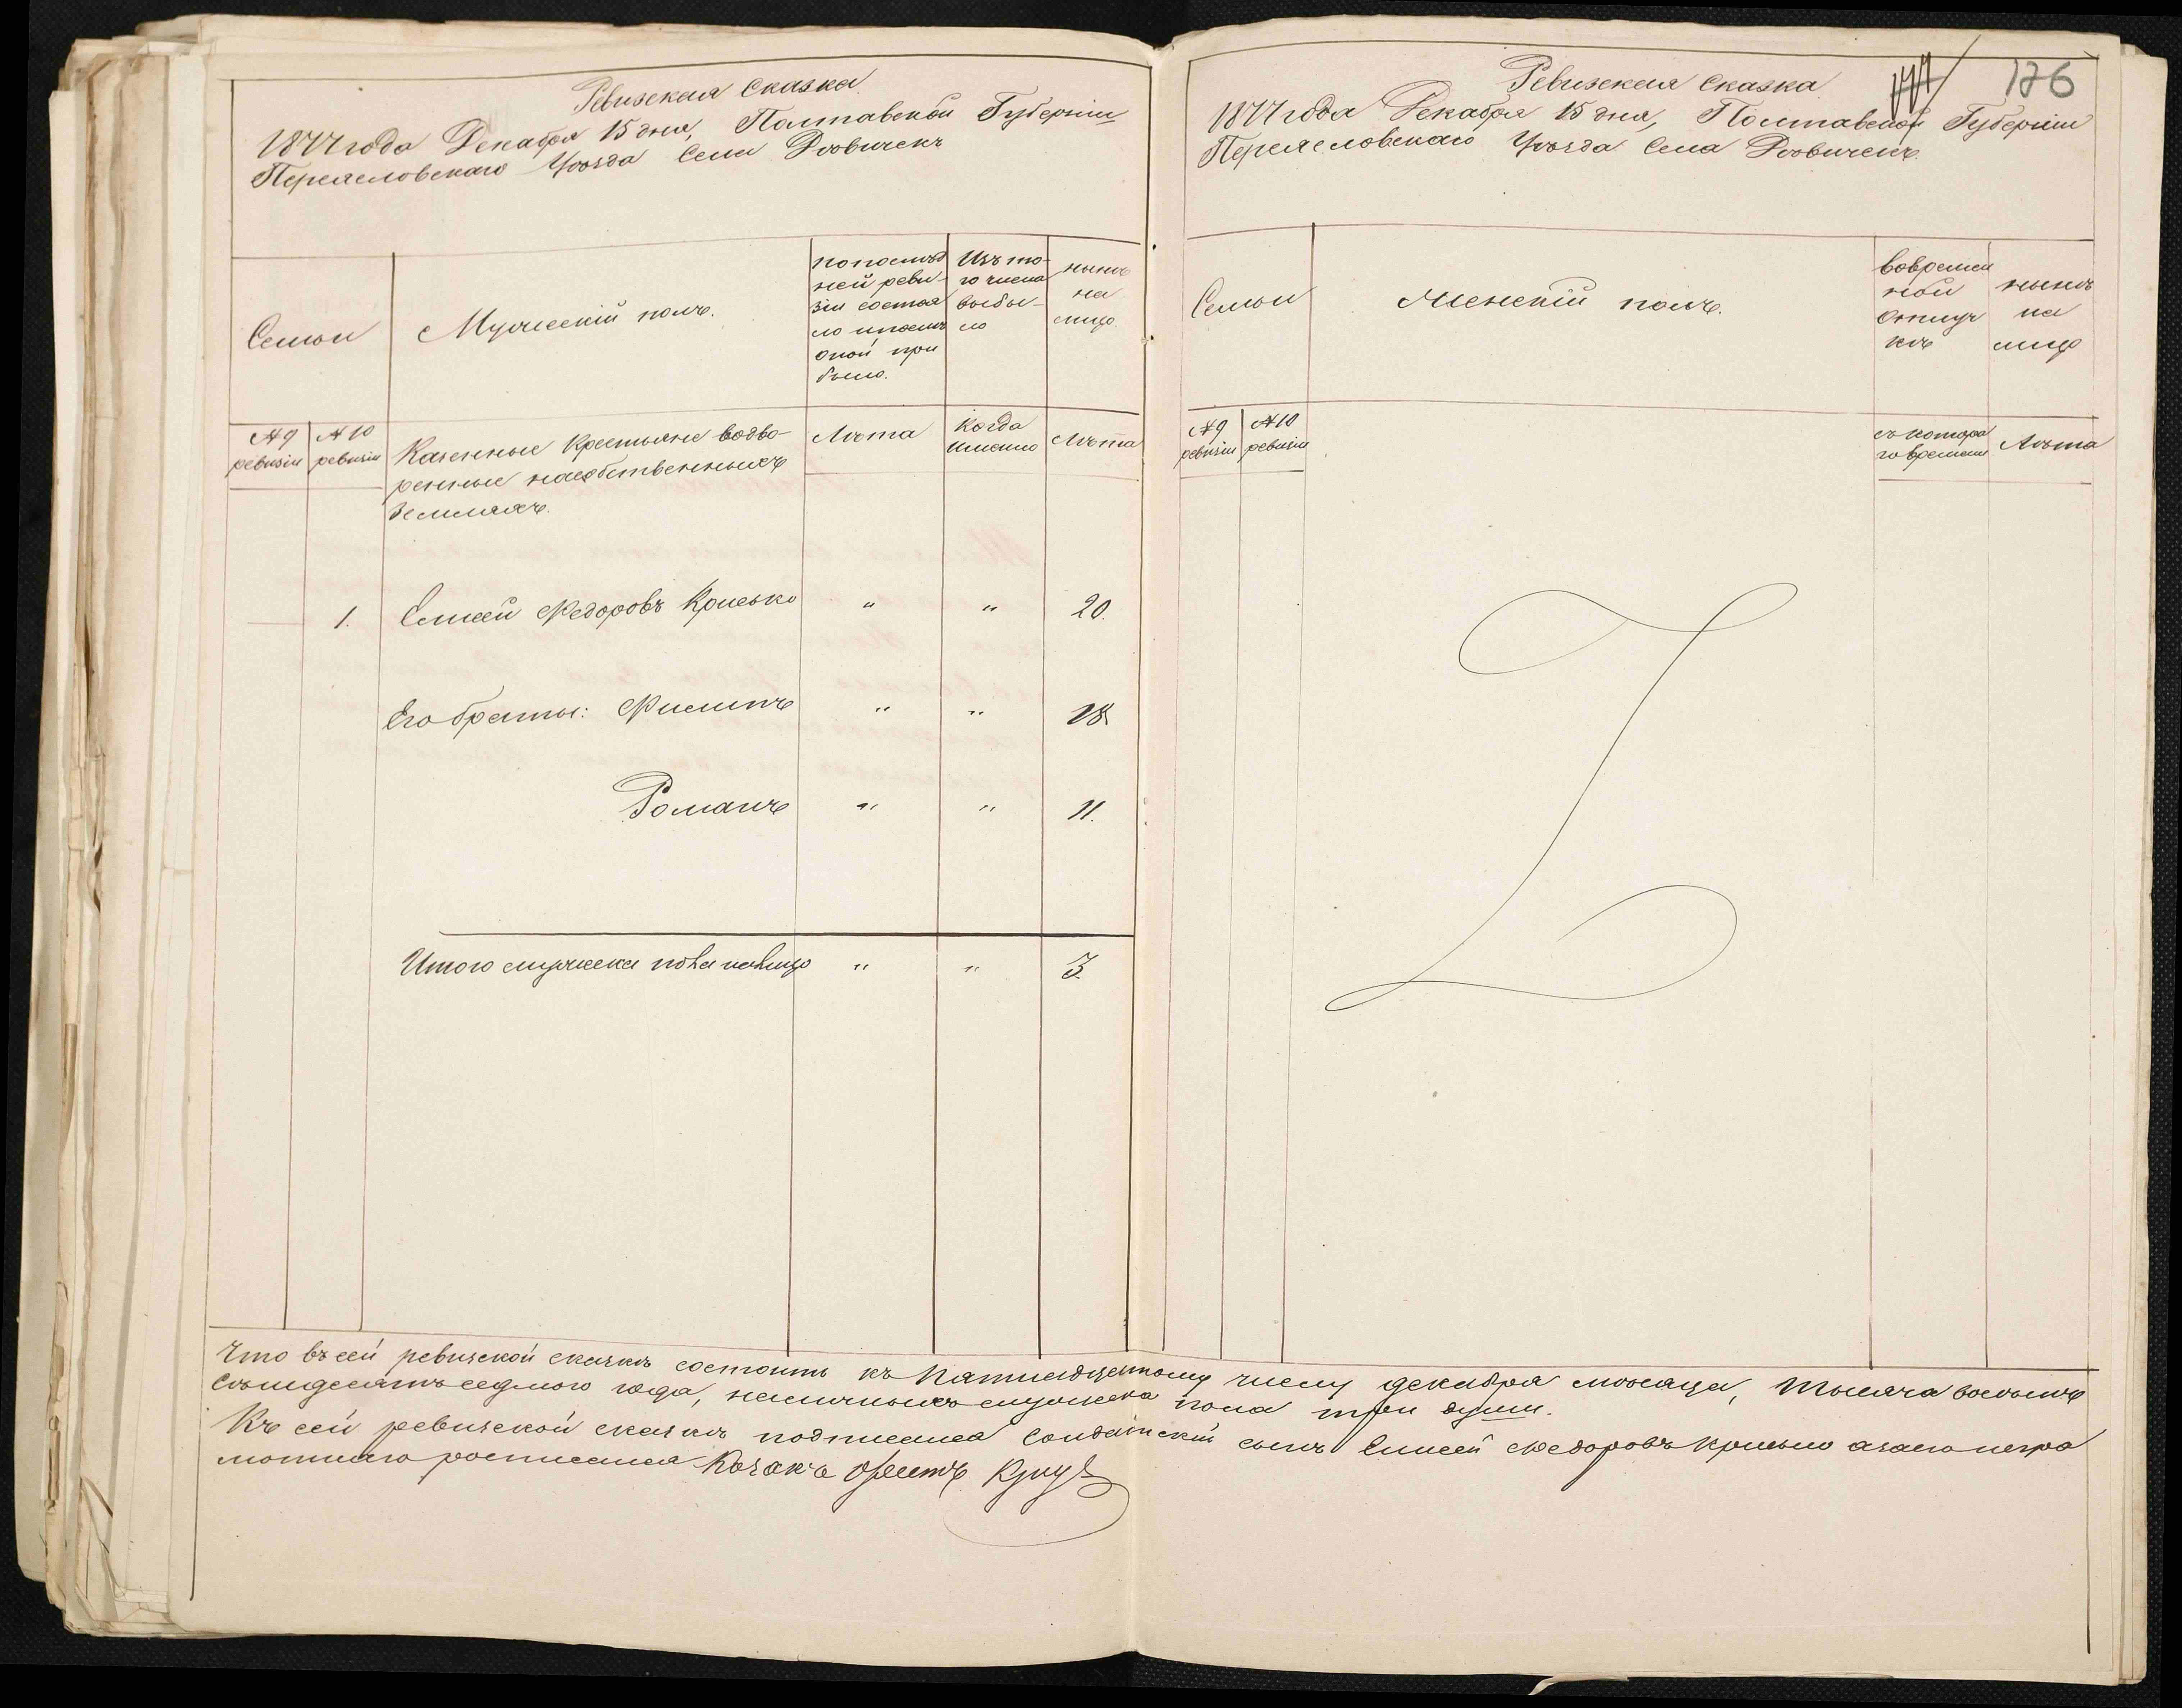 Ревизская Сказка
1877 года Декабря 15 дня, Полтавской Губерніи
Переясловскаго Уѣзда Села Дѣвичекъ
Семьи
Мужескій полъ.
попослѣд
ней реви-
зіи состоя
ло и послѣ
оной при
было.
Изъ то-
го числа
выбы-
ло
нынѣ
на
лицо
№ 9
ревизіи
№ 10
ревизіи
Казенные Крестьяне водво-
ренные на собственныхъ
земляхъ.
Лѣта
Когда
именно
Лѣта
1. Елисей Федоровъ Крисько " " 20.
Его братья: Филипъ " " 18
Романъ " " 11.
Итого мужеска пола налицо " " 3.
177 176
Ревизская Сказка
1877 года Декабря 15 дня, Полтавской Губерніи
Переясловскаго Уѣзда Села Дѣвичекъ
Семьи
Женскій полъ.
вовремен
ной
отлуч
кѣ
нынѣ
на
лицо
№ 9
ревизіи
№ 10
ревизіи
съ котора
го времени
Лѣта
Что въ сей ревизской сказкѣ состоитъ къ пятнадцатому числу декабря мѣсяца, тысяча восемьсотъ
семьдесятъ седмого года, наличныхъ мужеска пола три души.
Къ сей ревизской сказкѣ подписался Солдатскій сынъ Елисей Федоровъ Крисько а за него негра
мотнаго росписался Козакъ